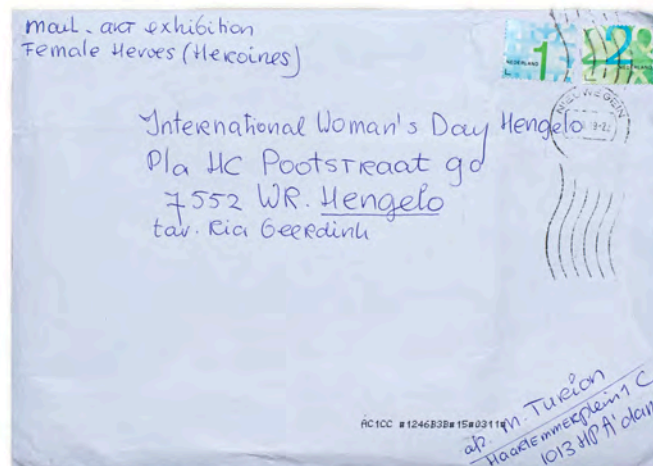 mail-art exhibition
Female Heroes (Heroines)
1
NEDERLAND
2
NEDERLAND
NIEUWEGEIN
International Woman's Day Hengelo
Pla HC Pootstraat 90
7552 WR. Hengelo
tav. Ria Geerdink
AC1CC #1246B3B#15#0311#
afz. M. Turion
Haarlemmerplein 1 C
1013 HP A'dam